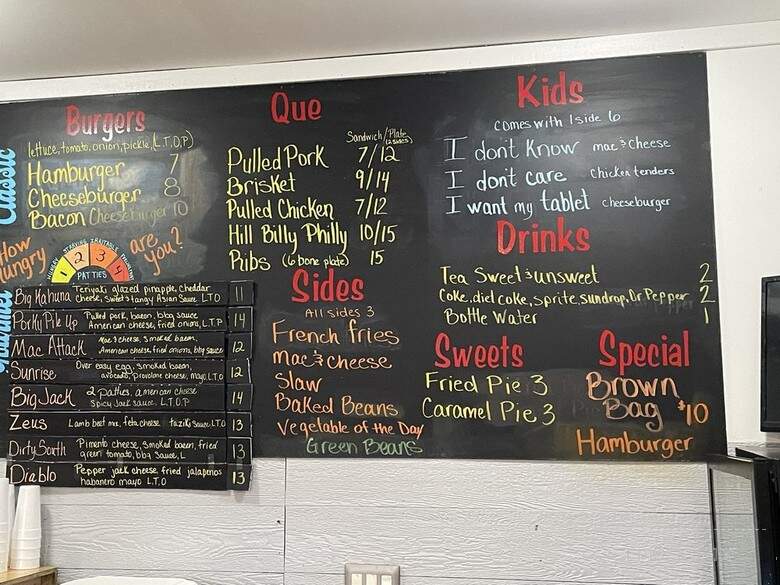 Burgers
Classic
lettuce, tomato, onion, pickle, (L.T.O.P)
Hamburger 7
Cheeseburger 8
Bacon Cheeseburger 10
How Hungry are you?
HUNGRY STARVING IRRITABLE
1 2 3 4
PATTIES
Big Kahuna Teriyaki glazed pinapple, cheddar 11
cheese, sweet & tangy Asian Sauce L.T.O
Porky Pile Up Pulled pork, bacon, bbq sauce 14
American cheese, fried onions, L.T.P
Mac Attack Mac & cheese, smoked bacon, 12
American cheese, fried onions, bbq sauce
Sunrise Over easy egg, smoked bacon, 12
avocado, provolone cheese, mayo L.T.O
Big Jack 2 patties, american cheese 14
Spicy Jack sauce. L.T.O.P
Zeus Lamb beef mix, feta cheese taziki sauce L.T.O 13
Dirty South Pimento cheese, smoked bacon, fried 13
green tomato, bbq sauce, L
Diablo Pepper jack cheese, fried jalapenos 13
habanero mayo L.T.O
Que
Sandwich/Plate
(2 sides)
Pulled Pork 7/12
Brisket 9/14
Pulled Chicken 7/12
Hill Billy Philly 10/15
Ribs (6 bone plate) 15
Sides
All sides 3
French fries
mac & cheese
Slaw
Baked Beans
Vegetable of the Day
Green Beans
Kids
comes with 1 side 6
I don't Know mac & cheese
I don't care Chicken tenders
I want my tablet cheeseburger
Drinks
Tea Sweet & unsweet 2
Coke, diet coke, sprite, sundrop, Dr Pepper 2
Bottle Water 1
Sweets
Fried Pie 3
Caramel Pie 3
Special
Brown
Bag $10
Hamburger